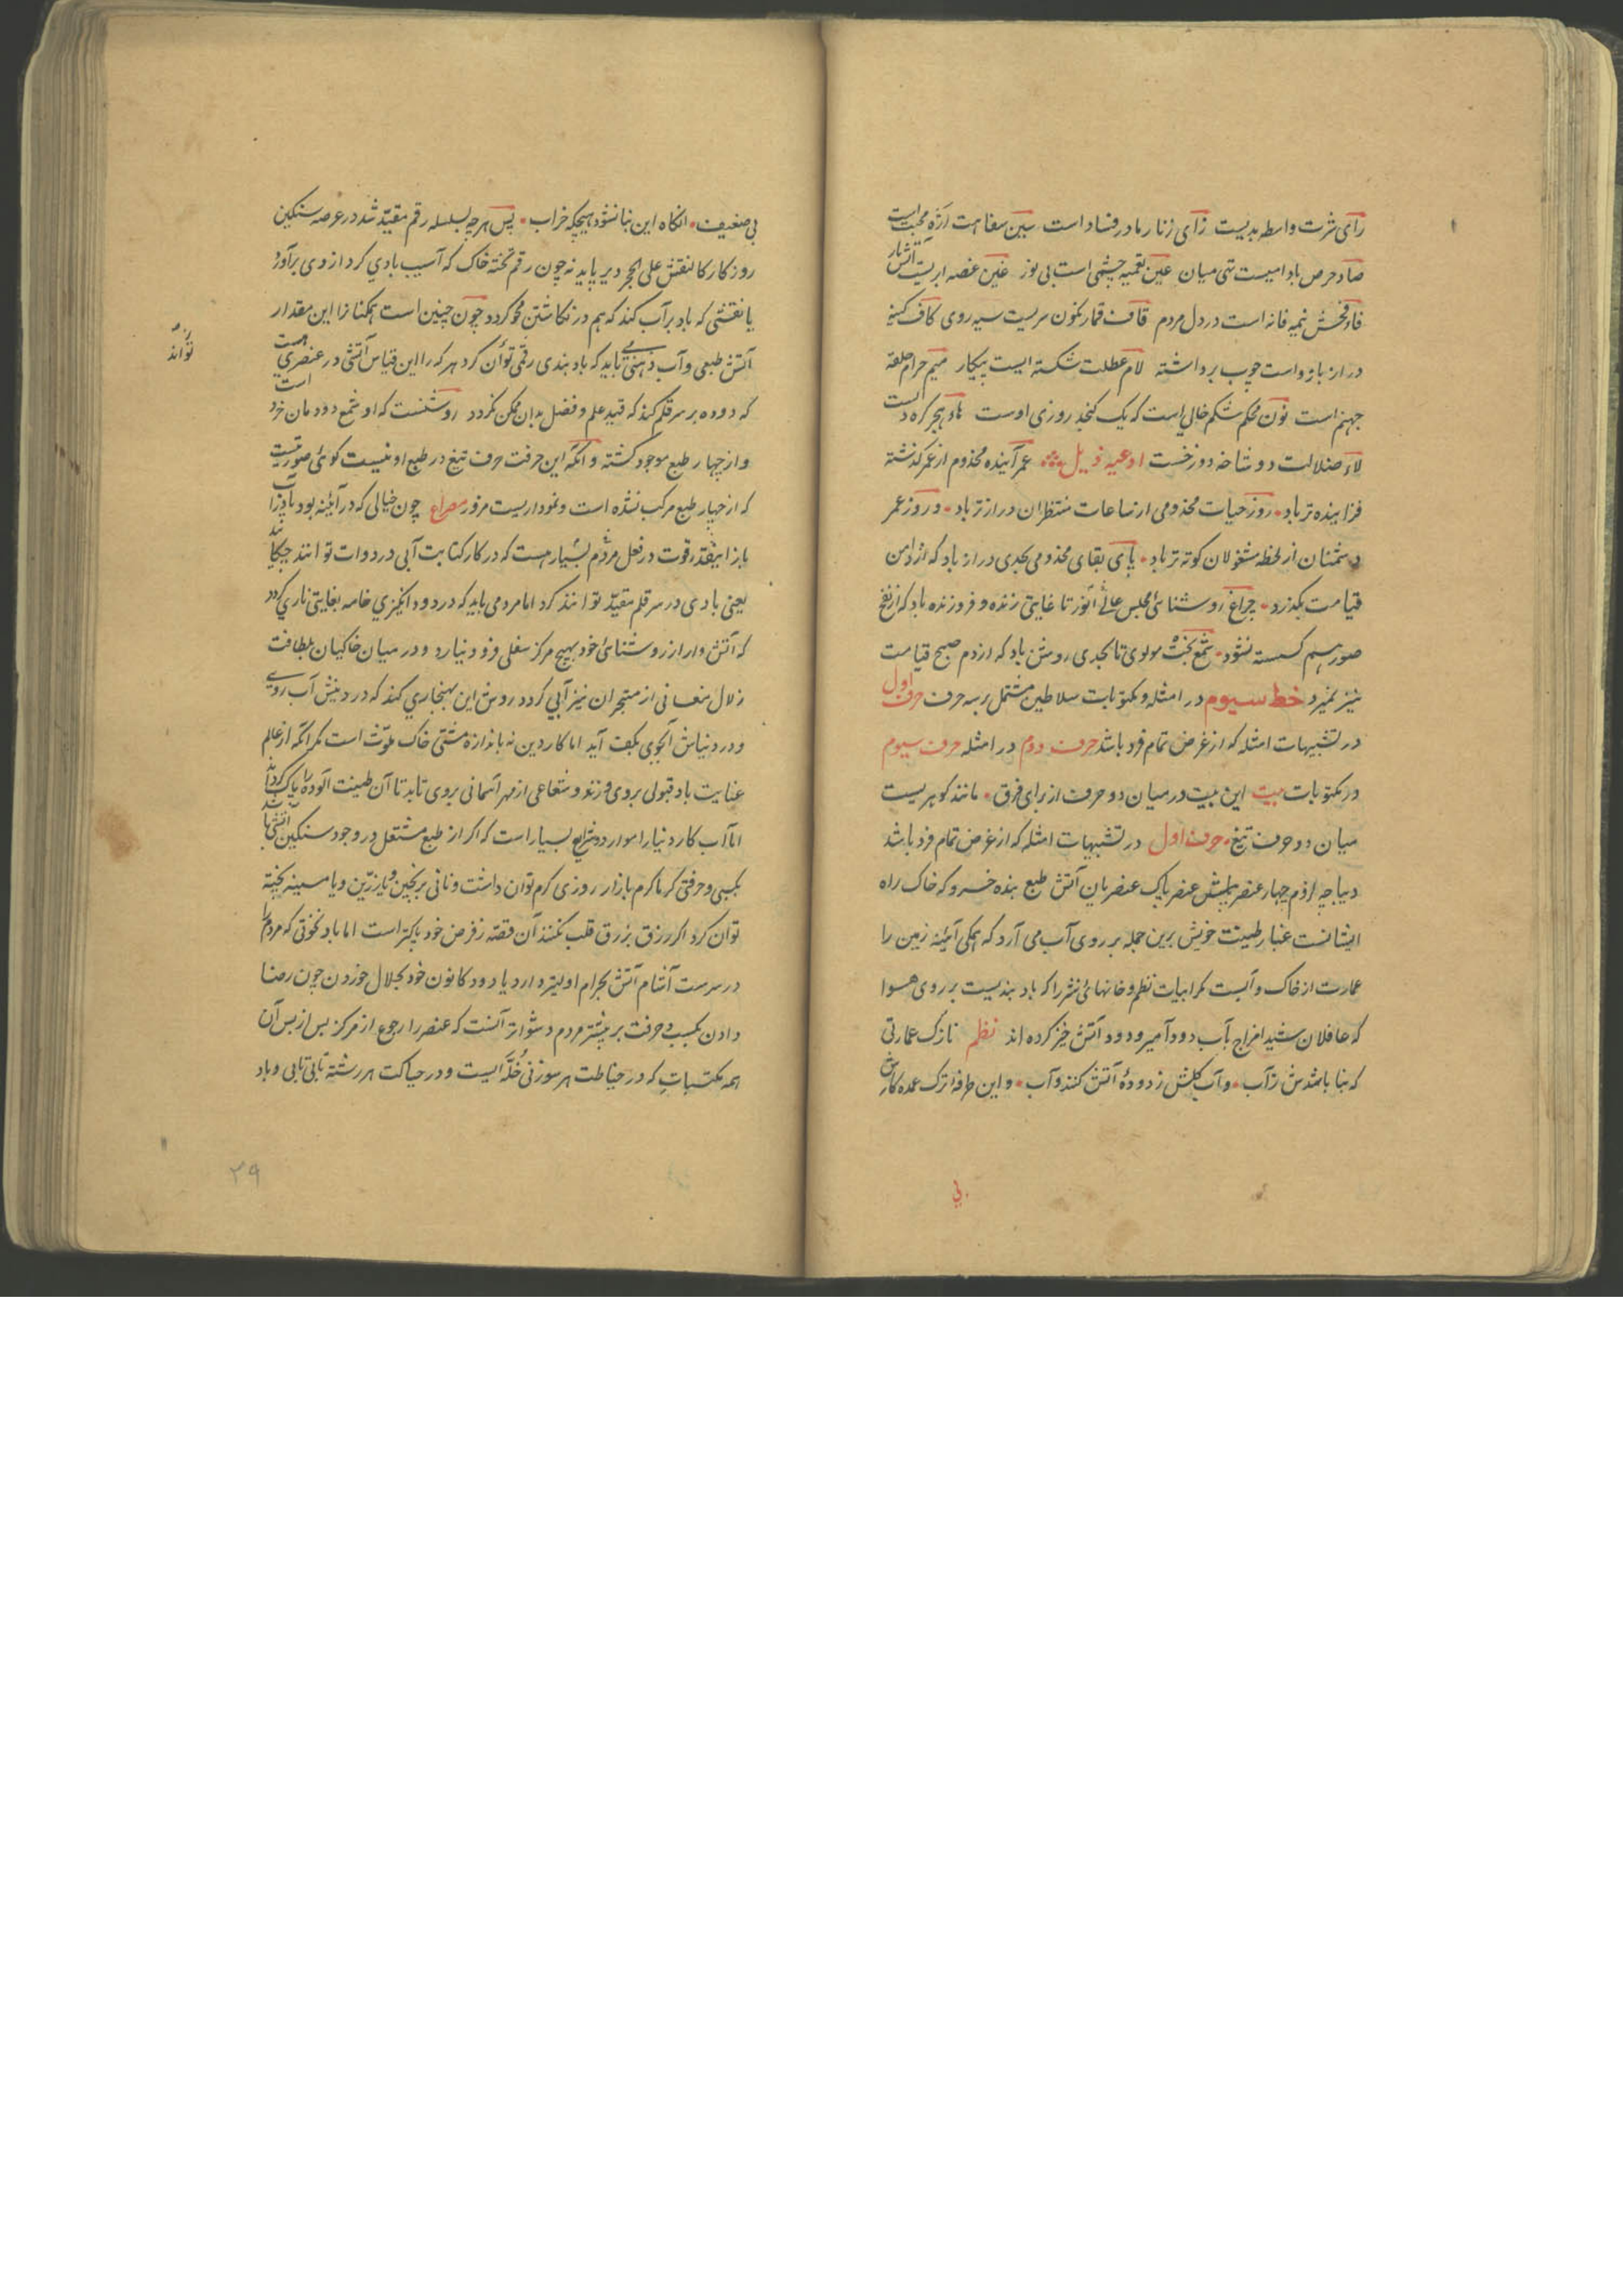 رای شرت واسطه بدیست زای زنا رمادر فساد است سین سفاهت ارّه محبت است
صاد حرص بادامیست تهی میان عین تعمیه چشمی است بی نور غین غصه ابریست آتشبار
فاء فحش نیمه فانه است در دل مردم قاف قمار نکون سریست سیه روی کاف کینه
دراز بازو است چوب برداشته لام عطلت شکسته ایست بیکار میم حرام حلقه
جهنم است نون محکم شکم خالی است که یک کنجد روزی اوست هاء هجر کره دلست
لاء ضلالت دو شاخه دوزخست ادعیه ذیل عمر آینده مخدوم از عمر گذشته
فزاینده تر باد روز حیات مخدومی از ساعات منتظران درازتر باد و روز عمر
دشمنان از لحظه مشغولان کوته تر باد پای بقای مخدومی بحدی دراز باد که از دامن
قیامت بگذرد چراغ روشنائی مجلس عالی انور تا غایتی زنده و فروزنده باد که از نفخ
صور هم کسسته نشود شمع بخت مولوی تا بحدی روشن باد که از دم صبح قیامت
نیز نمیرد خط سیوم در امثله و مکتوبات سلاطین مشتمل بر سه حرف حرف اول
در تشبیهات امثله که از غرض تمام فرد باشد حرف دوم در امثله حرف سیوم
در مکتوبات بیت این بیت در میان دو حرف از برای فرق مانند کوهریست
میان دو حرف تیغ حرف اول در تشبیهات امثله که از غرض تمام فرد باشد
دیباجه ازدم چهار عنصر پیش عنصر پاک عنصریان آتش طبع بنده خسرو که خاک راه
ایشانست غبار طینت خویش برین جمله بر روی آب می آرد که همکی آئینه زمین را
عمارت از خاک و آبست مکر ابیات نظم و خانهائ نثر را که باد بندیست بر روی هوا
که عاقلان شید امزاج بآب دود آمیز و دود آتش خیز کرده اند نظم نازک عمارتی
که بنا باشدش ز آب و آب کلش ز دودهٔ آتش کنند و آب و این طرفه ترک عمده کارش
بی ضعیف انکاه این بنا نشود هیچکه خراب پس هرچه بسلسله رقم مقید شد در عرصه سنکین
روزکار کالنقش علی الحجر دیر پاید نه چون رقم تخته خاک که آسیب بادی کرد از وی برآورد
یا نقشی که باد بر آب کند که هم در نکاشتن محو کردد چون چنین است همکنانرا این مقدار
آتش طبعی و آب ذهنی باید که باد بندی رقمی توان کرد هر که را این قیاس آتشی در عنصری هست
که دوده بر سر قلم کند که قید علم و فضل بدان ممکن کردد روشنست که او شمع دودمان خود است
و از چهار طبع موجود کشته و آنکه این حرفت حرف تیغ در طبع او نیست کوئی صورتیست
که از چهار طبع مرکب نشده است و نموداریست مزور مصراع چون خیالی که در آئینه بود یا در آب
باز اینقدر قوت در فعل مردم بسیار هست که در کار کتابت آبی در دوات توانند چکانید
یعنی بادی در سر قلم مقید توانند کرد اما مردمی باید که در دود انکیزی خامه بغایتی ناری کردد
که آتش وار از روشنائی خود بهیچ مرکز سفلی فرود نیارد و در میان خاکیان بلطافت
زلال معانی از متبحران نیز آبی کردد روش این هنجاری کند که در دینش آب روی
و در دنیاش آبجوی بکف آید اما کار دین نه باندازه مشتی خاک ملوّث است مکر آنکه از عالم
عنایت باد قبولی بر وی وزند و شعاعی از مهر آسمانی بر وی تابد تا آن طینت آلوده را پاک کرداند
اما آب کار دنیا را موارد و شرایع بسیار است که اکر از طبع مشتعل در وجود سنکین آتشی باشد
بکسبی و حرفتی کرماکرم بازار روزی کرم توان داشت و نانی برنجین و یا زرین و یا مسینه پخته
توان کرد اکر رزق بزرق قلب نکنند آن قصه ز قرص خود پاکتر است اما باد نخوتی که مردم را
در سرست آشام آتش بحرام اولیتر دارد یا دود کانون خود بحلال خوردن چون رضا
دادن بکسب و حرفت بر بیشتر مردم دشوارتر آنست که عنصر را رجوع از مرکز بس از پس آن
همه مکتسبات که در خیاطت هر سوزنی خُلّه ایست و در حیاکت هر رشته تابی تابی و باد
توانند
۲۹